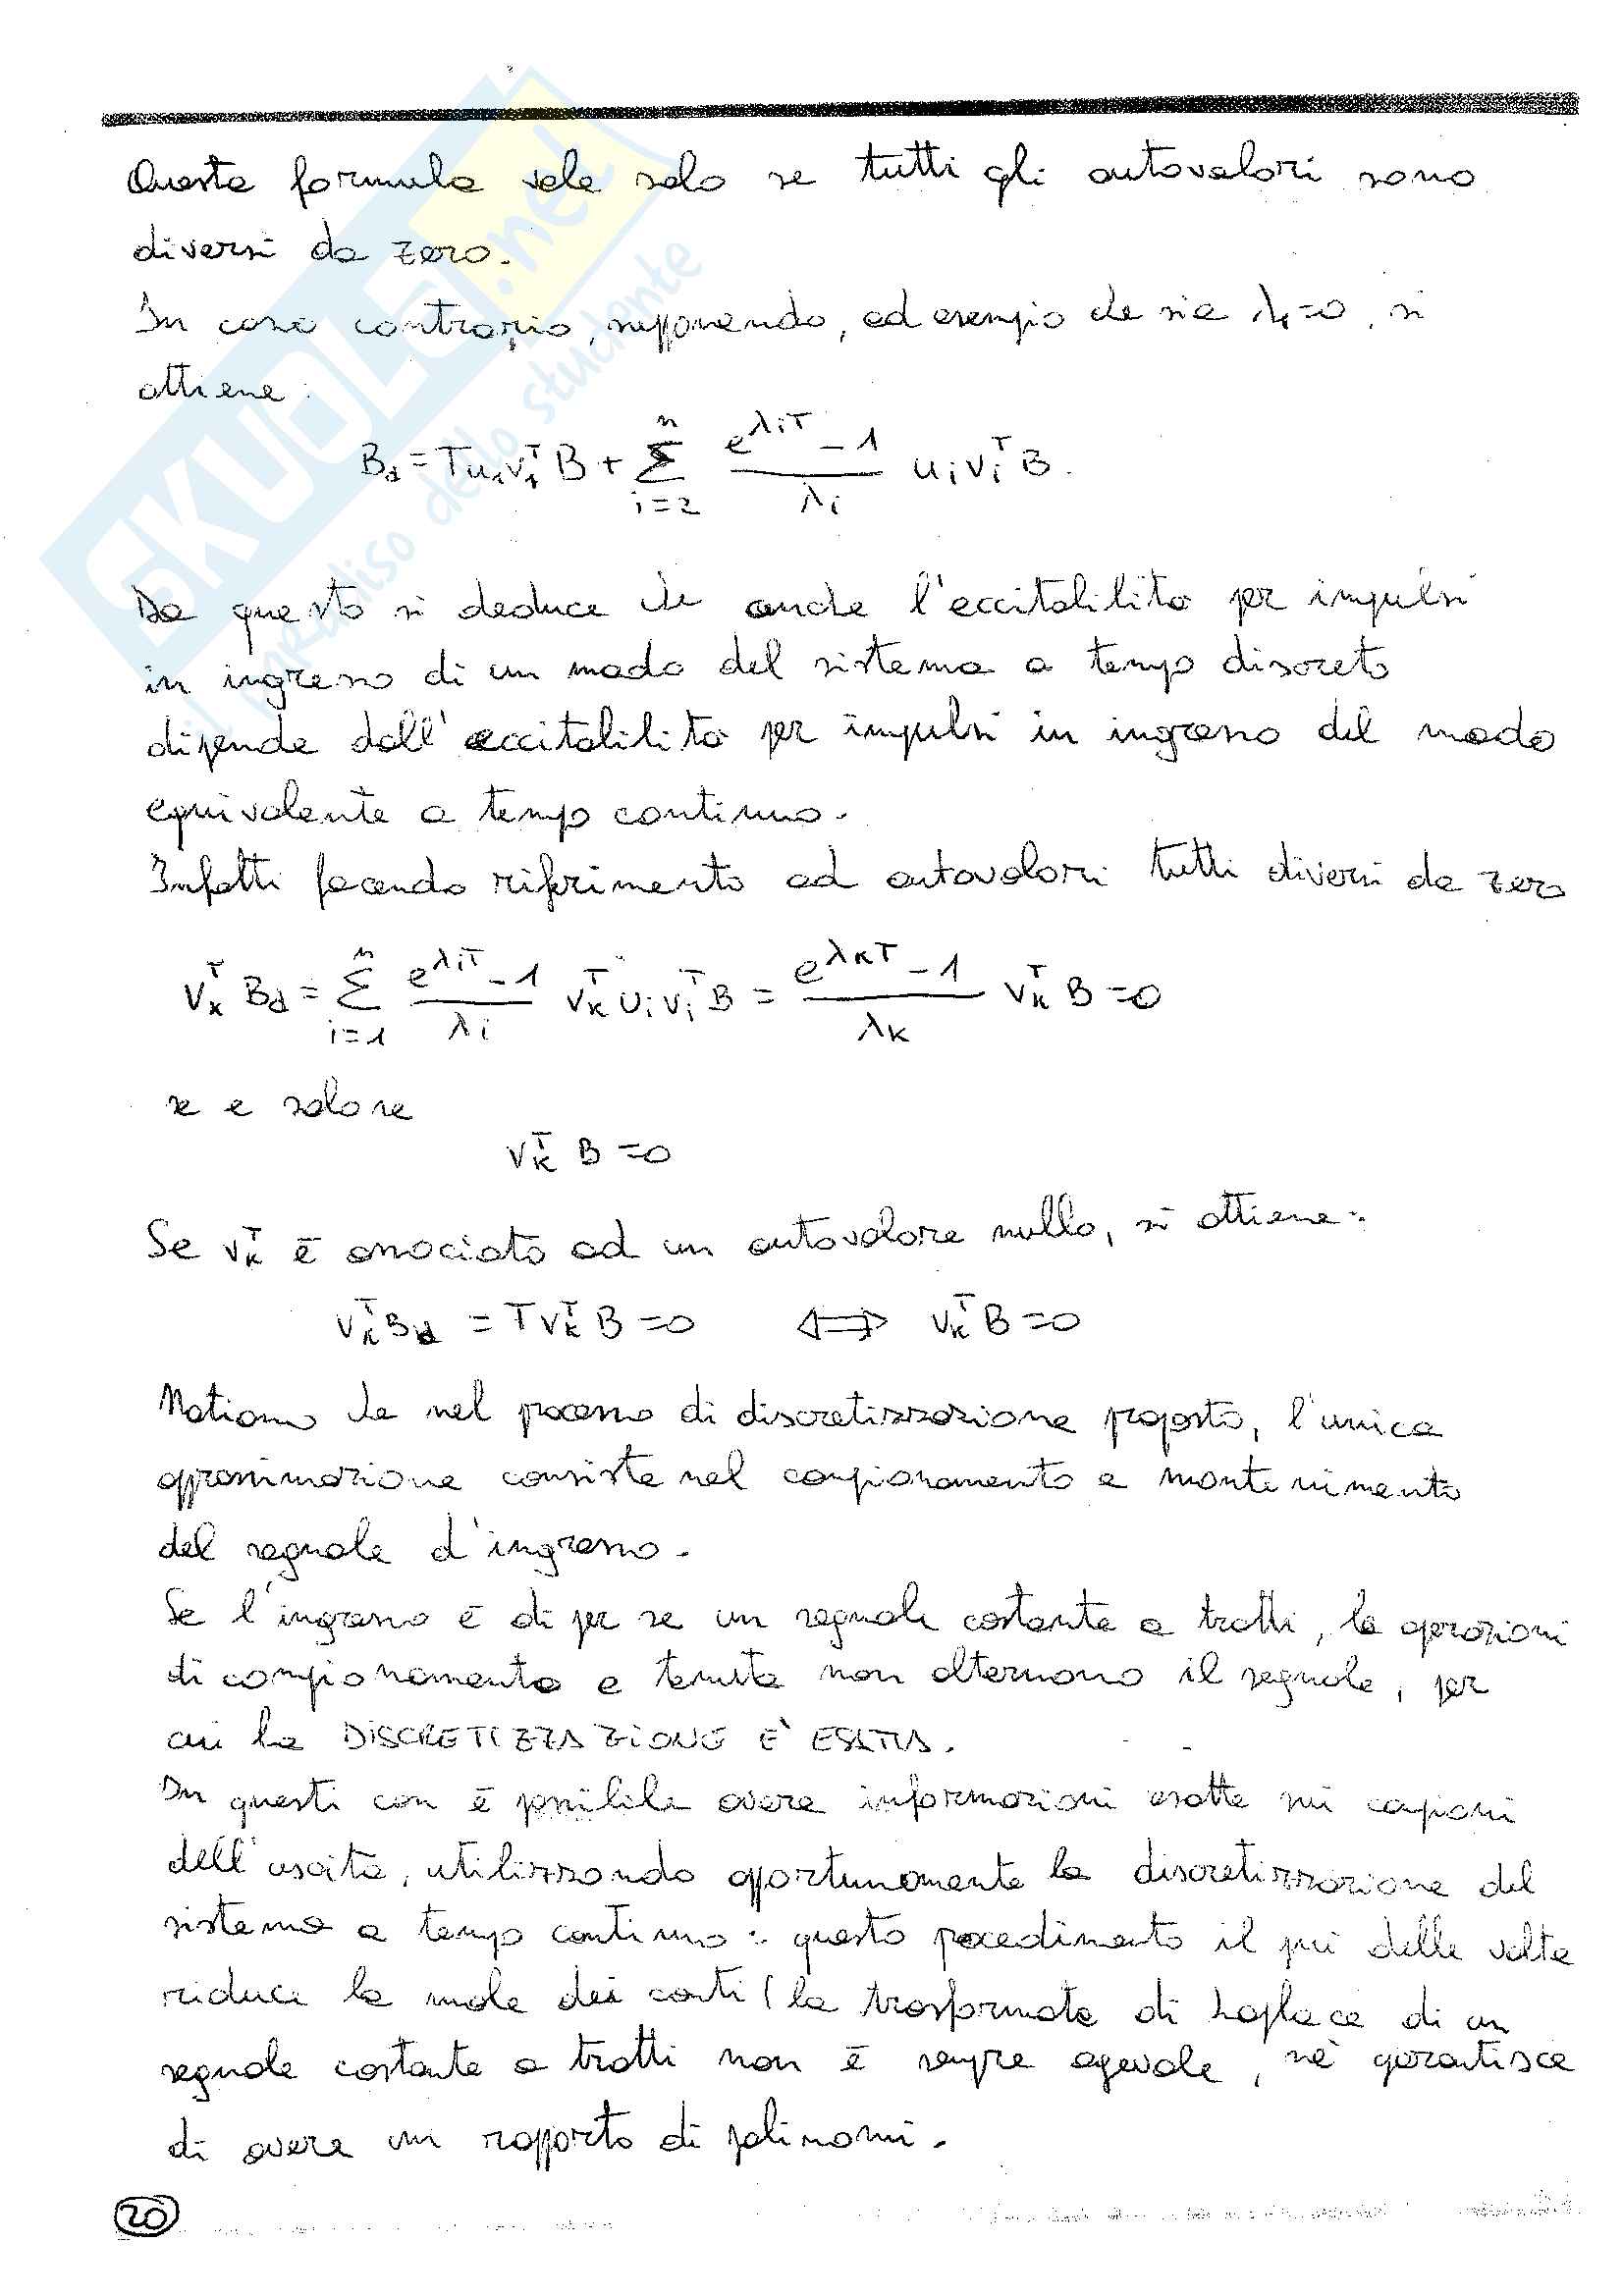 Questa formula vale solo se tutti gli autovalori sono
diversi da zero.
In caso contrario, supponendo, ad esempio che sia λ₁=0, si
ottiene:
B_d = T u₁v₁ᵀ B + Σ_{i=2}^{n} (e^{λiT} - 1)/λi uᵢvᵢᵀ B.
Da questo si deduce che anche l'eccitabilità per impulsi
in ingresso di un modo del sistema a tempo discreto
dipende dall'eccitabilità per impulsi in ingresso del modo
equivalente a tempo continuo.
Infatti facendo riferimento ad autovalori tutti diversi da zero
v_kᵀ B_d = Σ_{i=1}^{n} (e^{λiT} - 1)/λi v_kᵀ uᵢ vᵢᵀ B = (e^{λkT} - 1)/λk v_kᵀ B = 0
se e solo se
v_kᵀ B = 0
Se v_kᵀ è associato ad un autovalore nullo, si ottiene:
v_kᵀ B_d = T v_kᵀ B = 0 ⟺ v_kᵀ B = 0
Notiamo che nel processo di discretizzazione proposto, l'unica
approssimazione consiste nel campionamento e mantenimento
del segnale d'ingresso.
Se l'ingresso è di per se un segnale costante a tratti, le operazioni
di campionamento e tenuta non alternano il segnale, per
cui la DISCRETIZZAZIONE E' ESATTA.
In questi casi è possibile avere informazioni esatte sui campioni
dell'uscita, utilizzando opportunamente la discretizzazione del
sistema a tempo continuo: questo procedimento il più delle volte
riduce la mole dei conti (la trasformata di Laplace di un
segnale costante a tratti non è sempre agevole, nè garantisce
di avere un rapporto di polinomi.
20
SKUOLA.net
il paradiso dello studente